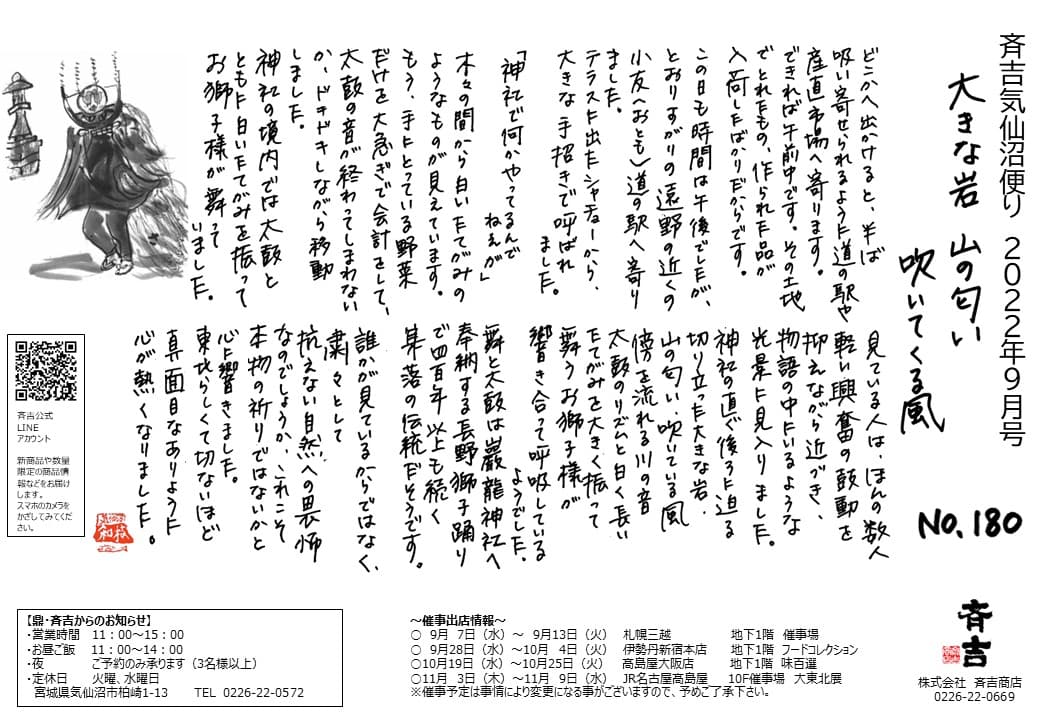 斉吉気仙沼便り 2022年9月号
大きな岩 山の匂い
吹いてくる風
No.180
どこかへ出かけると、半ば
吸い寄せられるように道の駅や
産直市場へ寄ります。
できれば午前中です。その土地
でとれたもの、作られた品が
入荷したばかりだからです。
この日も時間は午後でしたが、
とおりすがりの遠野の近くの
小友(おとも)道の駅へ寄り
ました。
テラスに出たシャチョーから、
大きな手招きで呼ばれ
ました。
「神社で何かやってるんで
ねぇが」
木々の間から白いたてがみの
ようなものが見えています。
もう、手にとっている野菜
だけを大急ぎで会計をして、
太鼓の音が終わってしまわない
か、ドキドキしながら移動
しました。
神社の境内では太鼓と
ともに白いたてがみを振って
お獅子様が舞って
いました。
見ている人は、ほんの数人
軽い興奮の鼓動を
抑えながら近づき、
物語の中にいるような
光景に見入りました。
神社の直ぐ後ろに迫る
切り立った大きな岩。
山の匂い、吹いている風
傍を流れる川の音
太鼓のリズムと白く長い
たてがみを大きく振って
舞うお獅子様が
響き合って呼吸している
ようでした。
舞と太鼓は巌龍神社へ
奉納する長野獅子踊り
で四百年以上も続く
集落の伝統だそうです。
誰かが見ているからではなく、
粛々として
抗えない自然への畏怖
なのでしょうか、これこそ
本物の祈りではないかと
心に響きました。
東北らしくて切ないほど
真面目なありように
心が熱くなりました。
斉吉公式
LINE
アカウント
新商品や数量
限定の商品情
報などをお届け
します。
スマホのカメラを
かざしてみてくだ
さい。
【鼎・斉吉からのお知らせ】
・営業時間 11：00～15：00
・お昼ご飯 11：00～14：00
・夜 ご予約のみ承ります（3名様以上）
・定休日 火曜、水曜日
宮城県気仙沼市柏崎1-13 TEL 0226-22-0572
～催事出店情報～
○ 9月 7日（水）～ 9月13日（火） 札幌三越 地下1階 催事場
○ 9月28日（水）～10月 4日（火） 伊勢丹新宿本店 地下1階 フードコレクション
○10月19日（水）～10月25日（火） 高島屋大阪店 地下1階 味百選
○11月 3日（木）～11月 9日（水） JR名古屋高島屋 10F催事場 大東北展
※催事予定は事情により変更になる事がございますので、予めご了承下さい。
斉吉
株式会社 斉吉商店
0226-22-0669